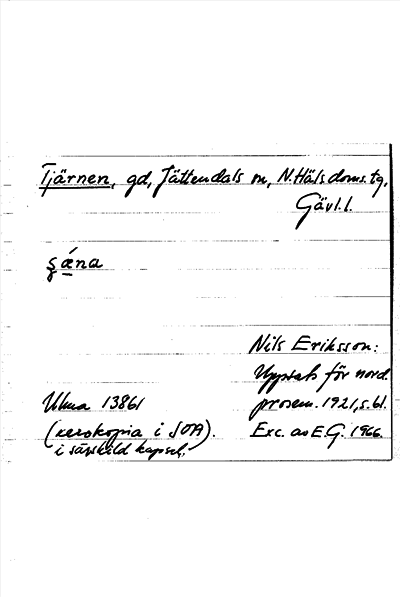 Tjärnen, gd, Jättendals sn, N. Häls. doms. tg,
Gävl. l.
ʂǽna
Nils Eriksson:
Uppsats för nord.
prosem. 1921, s. 61.
Exc. av E.G. 1966.
Ulma 13861
(xerokopia i SOA).
i särskild kapsel.